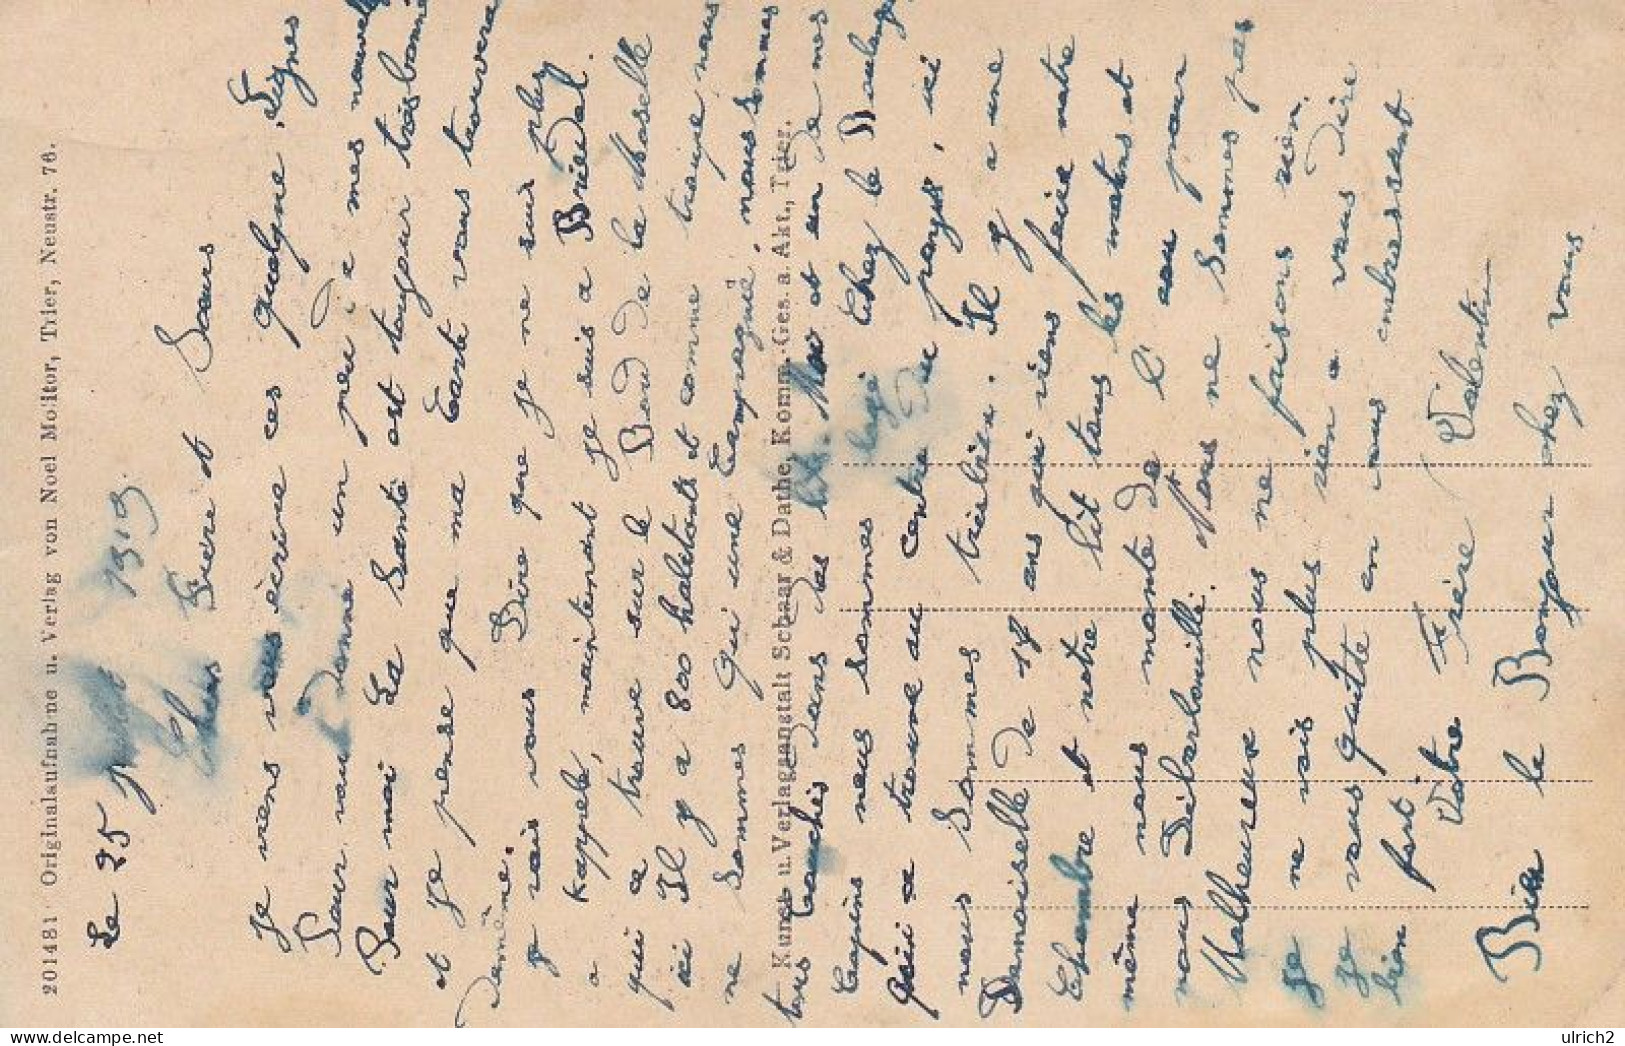 201481 Originalaufnahme u. Verlag von Noel Molitor, Trier, Neustr. 76.
Le 25 1919
Chers Frère et Sœurs
Je viens vous écrire ces quelque Lignes
Pour vous Donné un peu de mes nouvelle
Pour moi La Santé est toujour très bonne
et Je pense que ma Carte vous trouvera
Demême.
Je vais vous Dire que Je ne suis plus
a Kappele, maintenant Je suis a Briedel.
qui ce trouve sur le Bord De la Moselle
ici Il y a 800 habitants et comme troupe nous
ne Sommes qu'une Compagnie, nous sommes
Kunst- u. Verlagsanstalt Schaar & Dathe, Komm.-Ges. a. Akt., Trier.
tous couchés Dans des lits. Moi et un De mes
Copins nous sommes logé Chez le Boulanger
qui ce trouve au centre Du pays, ici
nous Sommes très bien. Il y a une
Demoiselle De 17 ans qui viens faire notre
Chambre et notre Lit tous les matins et
même nous monte De L'eau pour
nous Débarbouillé. Nous ne Sommes pas
Malheureux nous ne faisons rien.
Je ne vois plus rien a vous Dire
Je vous quitte en vous embrassent
bien fort
Votre Frère Valentin
Bien le Bonjour chez vous
ulrich2